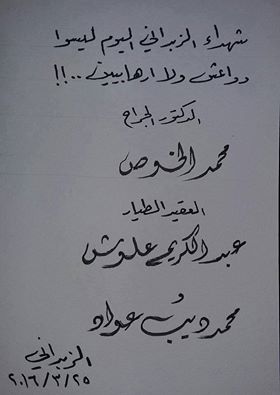 شهداء الزبداني اليوم ليسوا
دواعش ولا ارهابيين ..!!
الدكتور الجراح
محمد الخوص
العقيد الطيار
عبد الكريم علوش
محمد ديب عواد
الزبداني
٢٠١٦/٣/٢٥